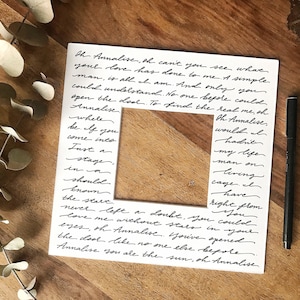 Oh Annalise, oh can't you see what
your love has done to me. A simple
man, is all I am. And only you
could understand. No one before could
open the door. To find the real me oh
Annalise Oh Annalise
where would I
be if you hadn't
come into my life
Just a man on
stage living
in a cage I
should have
known right from
the start you
never left a doubt you could
love me without stars in your
eyes, oh Annalise. You've opened
the door like no one else before
Annalise you are the sun, oh Annalise